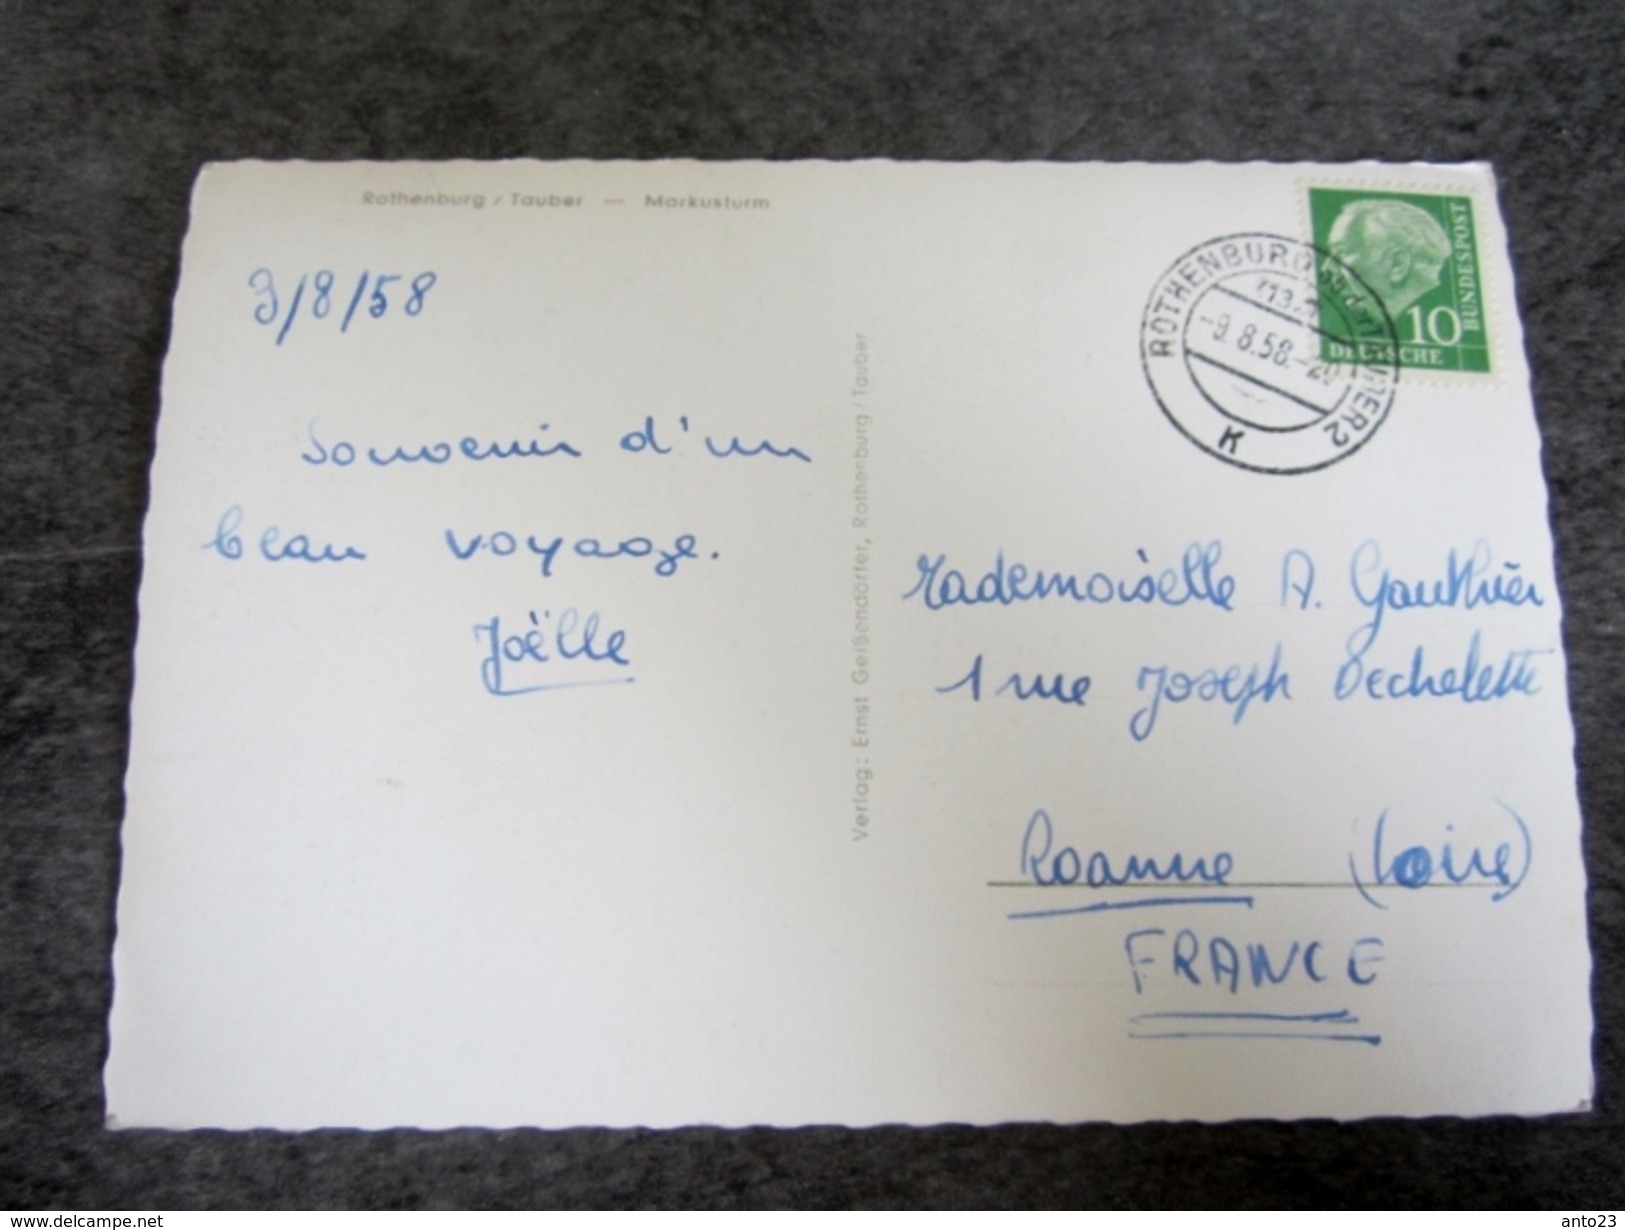 Rothenburg / Tauber — Markusturm
9/8/58
Souvenir d'un
beau voyage.
Joëlle
Verlag: Ernst Geißendörfer, Rothenburg/Tauber
ROTHENBURG ob der TAUBER 2
-9.8.58.-20
K
10
BUNDESPOST
DEUTSCHE
Mademoiselle A. Gauthier
1 rue Joseph Dechelette
Roanne (Loire)
FRANCE
www.delcampe.net
anto23